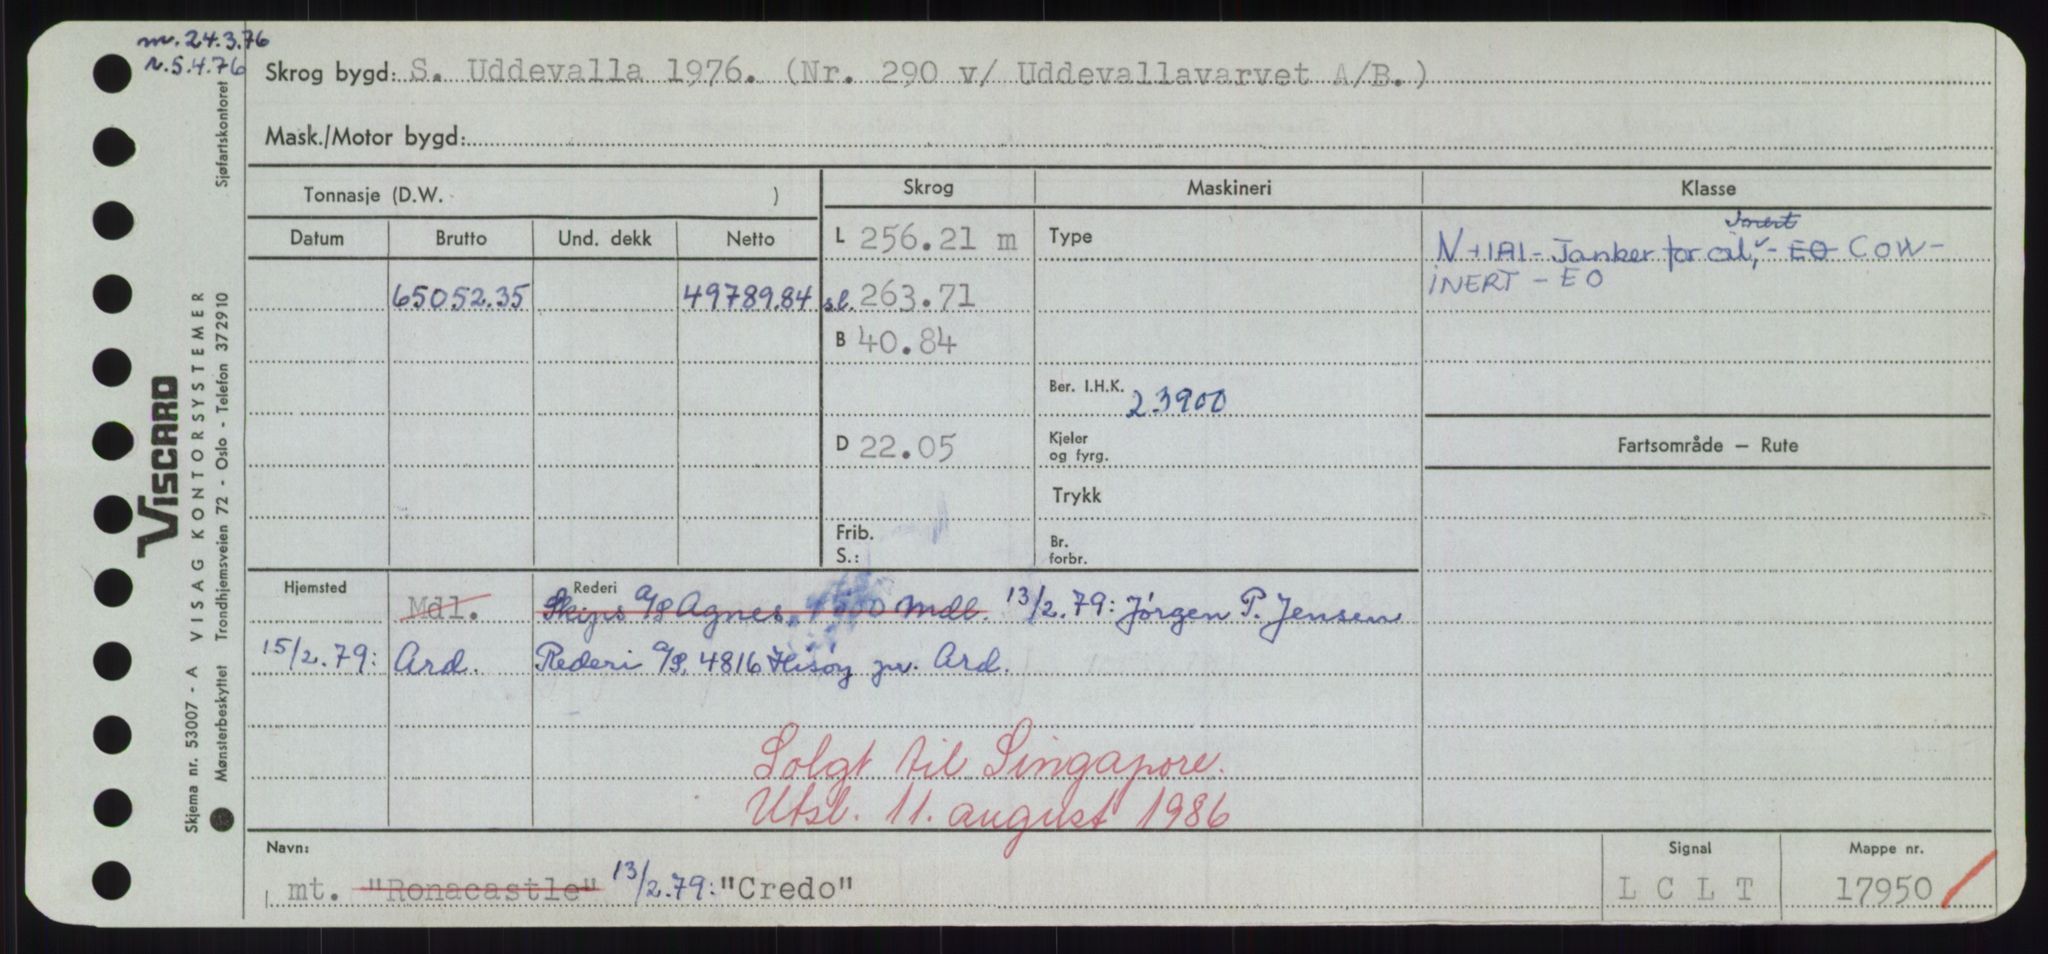 m. 24.3.76
n. 5.4.76
Skrog bygd: S. Uddevalla 1976. (Nr. 290 v/ Uddevallavarvet A/B.)
Mask./Motor bygd:
Tonnasje (D.W. )
Skrog
Maskineri
Klasse
Datum
Brutto
Und. dekk
Netto
65052.35
49789.84
L 256.21 m
sl. 263.71
B 40.84
D 22.05
Frib.
S.:
Type
Ber. I.H.K. 23900
Kjeler
og fyrg.
Trykk
Br.
forbr.
Inert
N+1A1 - Tanker for oil, - EO COW -
INERT - EO
Fartsområde — Rute
Hjemsted
Rederi
Mdl. Skips A/S Agnes, 1500 Mdl. 13/2.79: Jørgen P. Jensen
15/2.79: Ard. Rederi A/S, 4816 Hisøy pr. Ard.
Solgt til Singapore.
Utsl. 11. august 1986
Navn:
mt. "Ronacastle" 13/2.79: "Credo"
Signal
L C L T
Mappe nr.
17950
VISCARD
Skjema nr. 53007 - A VISAG KONTORSYSTEMER
Mønsterbeskyttet Trondhjemsveien 72 - Oslo - Telefon 372910 Sjøfartskontoret